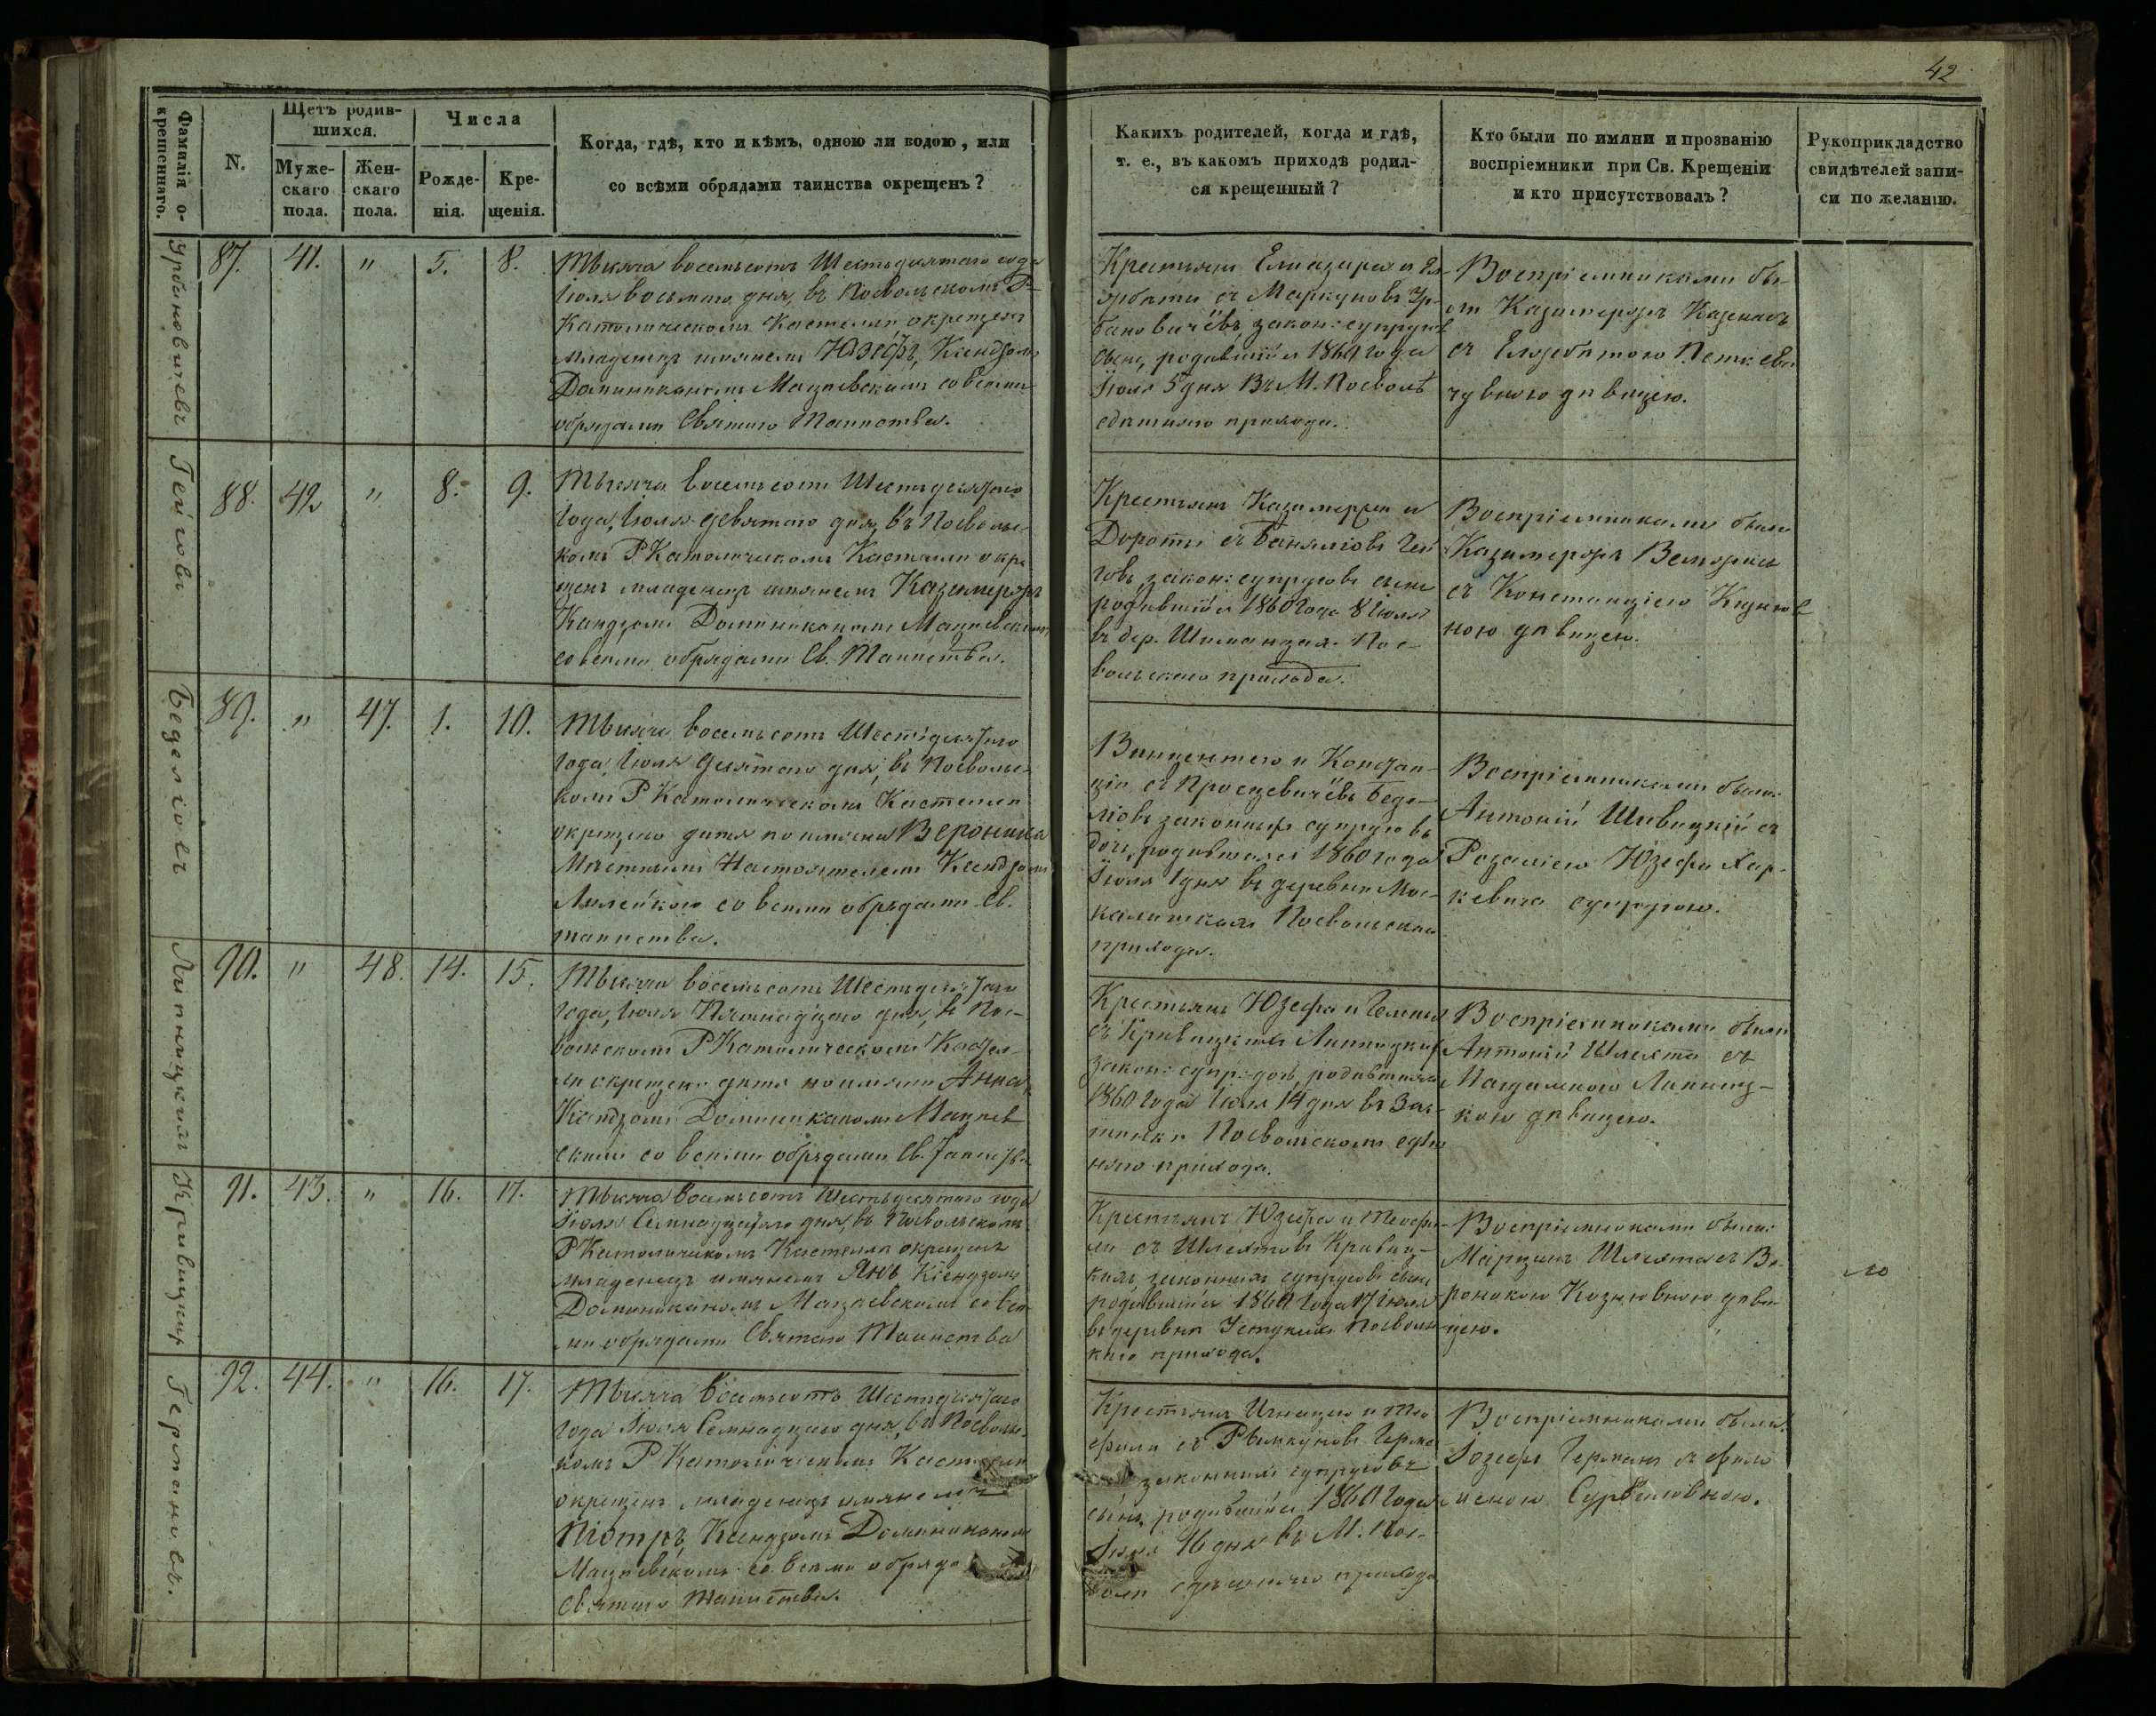 42
Фамилія о-
крещеннаго.
N.
Щетъ родив-
шихся.
Муже-
скаго
пола.
Жен-
скаго
пола.
Числа
Рожде-
нія.
Кре-
щенія.
Когда, гдѣ, кто и кѣмъ, одною ли водою, или
со всѣми обрядами таинства окрещенъ?
Какихъ родителей, когда и гдѣ,
т. е., въ какомъ приходѣ родил-
ся крещенный?
Кто были по имяни и прозванію
воспріемники при Св. Крещеніи
и кто присутствовалъ?
Рукоприкладство
свидѣтелей запи-
си по желанію.
Урбановичевъ
87. 41. " 5. 8.
Тысяча восемьсотъ Шестьдесятаго года
Іюля восьмаго дня, въ Посвольскомъ Р
Католическомъ Костелѣ окрещенъ
младенецъ имянемъ Юзефъ, Ксендзомъ
Доминиканомъ Мацаевскимъ со всѣми
обрядами Святаго Таинства.
Крестьянъ Елиазара и Ел-
жбеты съ Маркуновъ Ур-
бановичёвъ закон: супруговъ
сынъ, родившійся 1860 года
Іюля 5 дня въ М. Посволѣ
сдѣшняго прихода.
Воспріемниками бы-
ли Казимержъ Казенасъ
съ Елжбетою Петкеви-
чувною дѣвицею.
Гейговъ
88. 42 " 8. 9.
Тысяча восемьсотъ Шестьдесятаго
года, Іюля девятаго дня, въ Посволь-
комъ Р Католическомъ Костелѣ окре
щенъ младенецъ имянемъ Казимержъ
Ксндзомъ Доминиканомъ Мацаевскимъ
со всѣми обрядами Св. Таинства.
Крестьянъ Казимержа и
Дороты съ Банялюовъ Гей
говъ, закон: супруговъ сынъ
родившійся 1860 года 8 Іюля
въ дер. Пос-
вольскаго прихода.
Воспріемниками были
Казимержъ
съ Констанціею
ною дѣвицею.
Беделіовъ
89. " 47. 1. 10.
Тысяча восемьсотъ Шестідесятаго
года, Іюля десятаго дня, въ Посвольс
комъ Р Католическомъ Костелѣ
окрещено дитя по имяни Вероника
Мѣстнымъ Настоятелемъ Ксендзомъ
со всѣми обрядами Св.
таинства.
Винцентего и Констан-
ціи съ Бедe-
ліовъ законныхъ супруговъ
дочь, родившаяся 1860 года
Іюля 1 дня въ деревнѣ Мос-
калишкахъ Посвольскаго
прихода.
Воспріемниками были
Антоній съ
Розаліею Юзефа Хар-
кевича супругою.
Липницкихъ
90. " 48. 14. 15.
Тысяча восемьсотъ Шестьдесятаго
года, Іюля Пятнадцаго дня, въ Пос-
вольскомъ Р Католическомъ Косте-
лѣ окрещено дитя по имяни Анна,
Ксндзомъ Доминиканомъ Мацаев
скимъ со всѣми обрядами Св. Таинства
Крестьянъ Юзефа и
съ Кривицкихъ Липницкихъ
закон: супр: дочь, родившаяся
1860 года Іюля 14 дня въ
Посвольскомъ
прихода.
Воспріемниками были
Антоній Шлехто съ
Магдаленою Липниц-
кою дѣвицею.
Кривицкихъ
91. 43. " 16. 17.
Тысяча восемьсотъ Шестьдесятаго года
Іюля Семнадцатаго дня, въ Посвольскомъ
Р Католическомъ Костелѣ окрещенъ
младенецъ имянемъ Янъ Ксендзомъ
Доминиканомъ Мацаевскимъ со всѣ
ми обрядами Святаго Таинства
Крестьянъ Юзефа и Теофи-
ли съ Шлехтовъ Кривиц-
кихъ, законныхъ супруговъ сынъ
родившійся 1860 года 17 Іюля
въ деревнѣ Устукахъ Посвольс
каго прихода.
Воспріемниками были
Марцинъ Шлехто съ Ве
роникою дѣви
цею.
Германовъ.
92. 44. " 16. 17.
Тысяча восемьсотъ Шестьдесятаго
года Іюля Семнадцаго дня, въ Посволь-
комъ Р Католическомъ Костелѣ
окрещенъ младенецъ имянемъ
Піотръ, Ксендзомъ Доминиканомъ
Мацаевскимъ со всѣми обряда
Святаго Таинства.
Крестьянъ Игнацего и Тео
фили съ Рымкуновъ Герма
законныхъ супруговъ
сынъ, родившійся 1860 года
Іюля 16 дня въ М. Пос-
волѣ сдѣшняго прихода
Воспріемниками были
Іозефъ Германъ съ Фило
меною Сурвиловною.